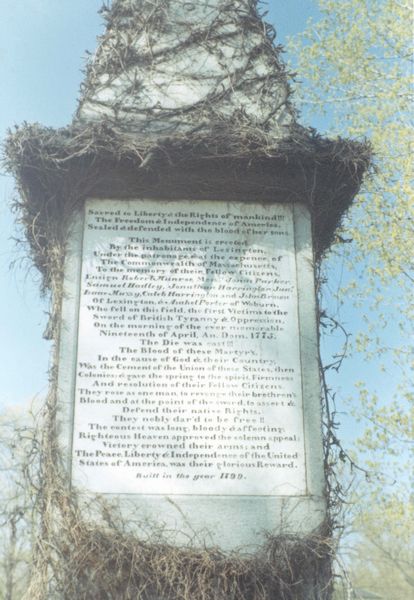 Sacred to Liberty & the Rights of mankind!!!
The Freedom & Independence of America,
Sealed & defended with the blood of her sons.
This Monument is erected
By the inhabitants of Lexington,
Under the patronage, & at the expence, of
The Commonwealth of Massachusetts,
To the memory of their Fellow Citizens,
Ensign Robert Munroe, Messrs. Jonas Parker,
Samuel Hadley, Jonathan Harrington Junr.
Isaac Muzzy, Caleb Harrington and John Brown
Of Lexington, & Asahel Porter of Woburn,
Who fell on this field, the first Victims to the
Sword of British Tyranny & Oppression,
On the morning of the ever memorable
Nineteenth of April, An. Dom. 1775.
The Die was cast!!!
The Blood of these Martyr's,
In the cause of God & their Country,
Was the Cement of the Union of these States, then
Colonies; & gave the spring to the spirit, Firmness
And resolution of their Fellow Citizens.
They rose as one man, to revenge their brethren's
Blood and at the point of the sword, to assert &
Defend their native Rights.
They nobly dar'd to be free!!
The contest was long, bloody & affecting,
Righteous Heaven approved the solemn appeal;
Victory crowned their arms; and
The Peace, Liberty & Independence of the United
States of America, was their glorious Reward.
Built in the year 1799.